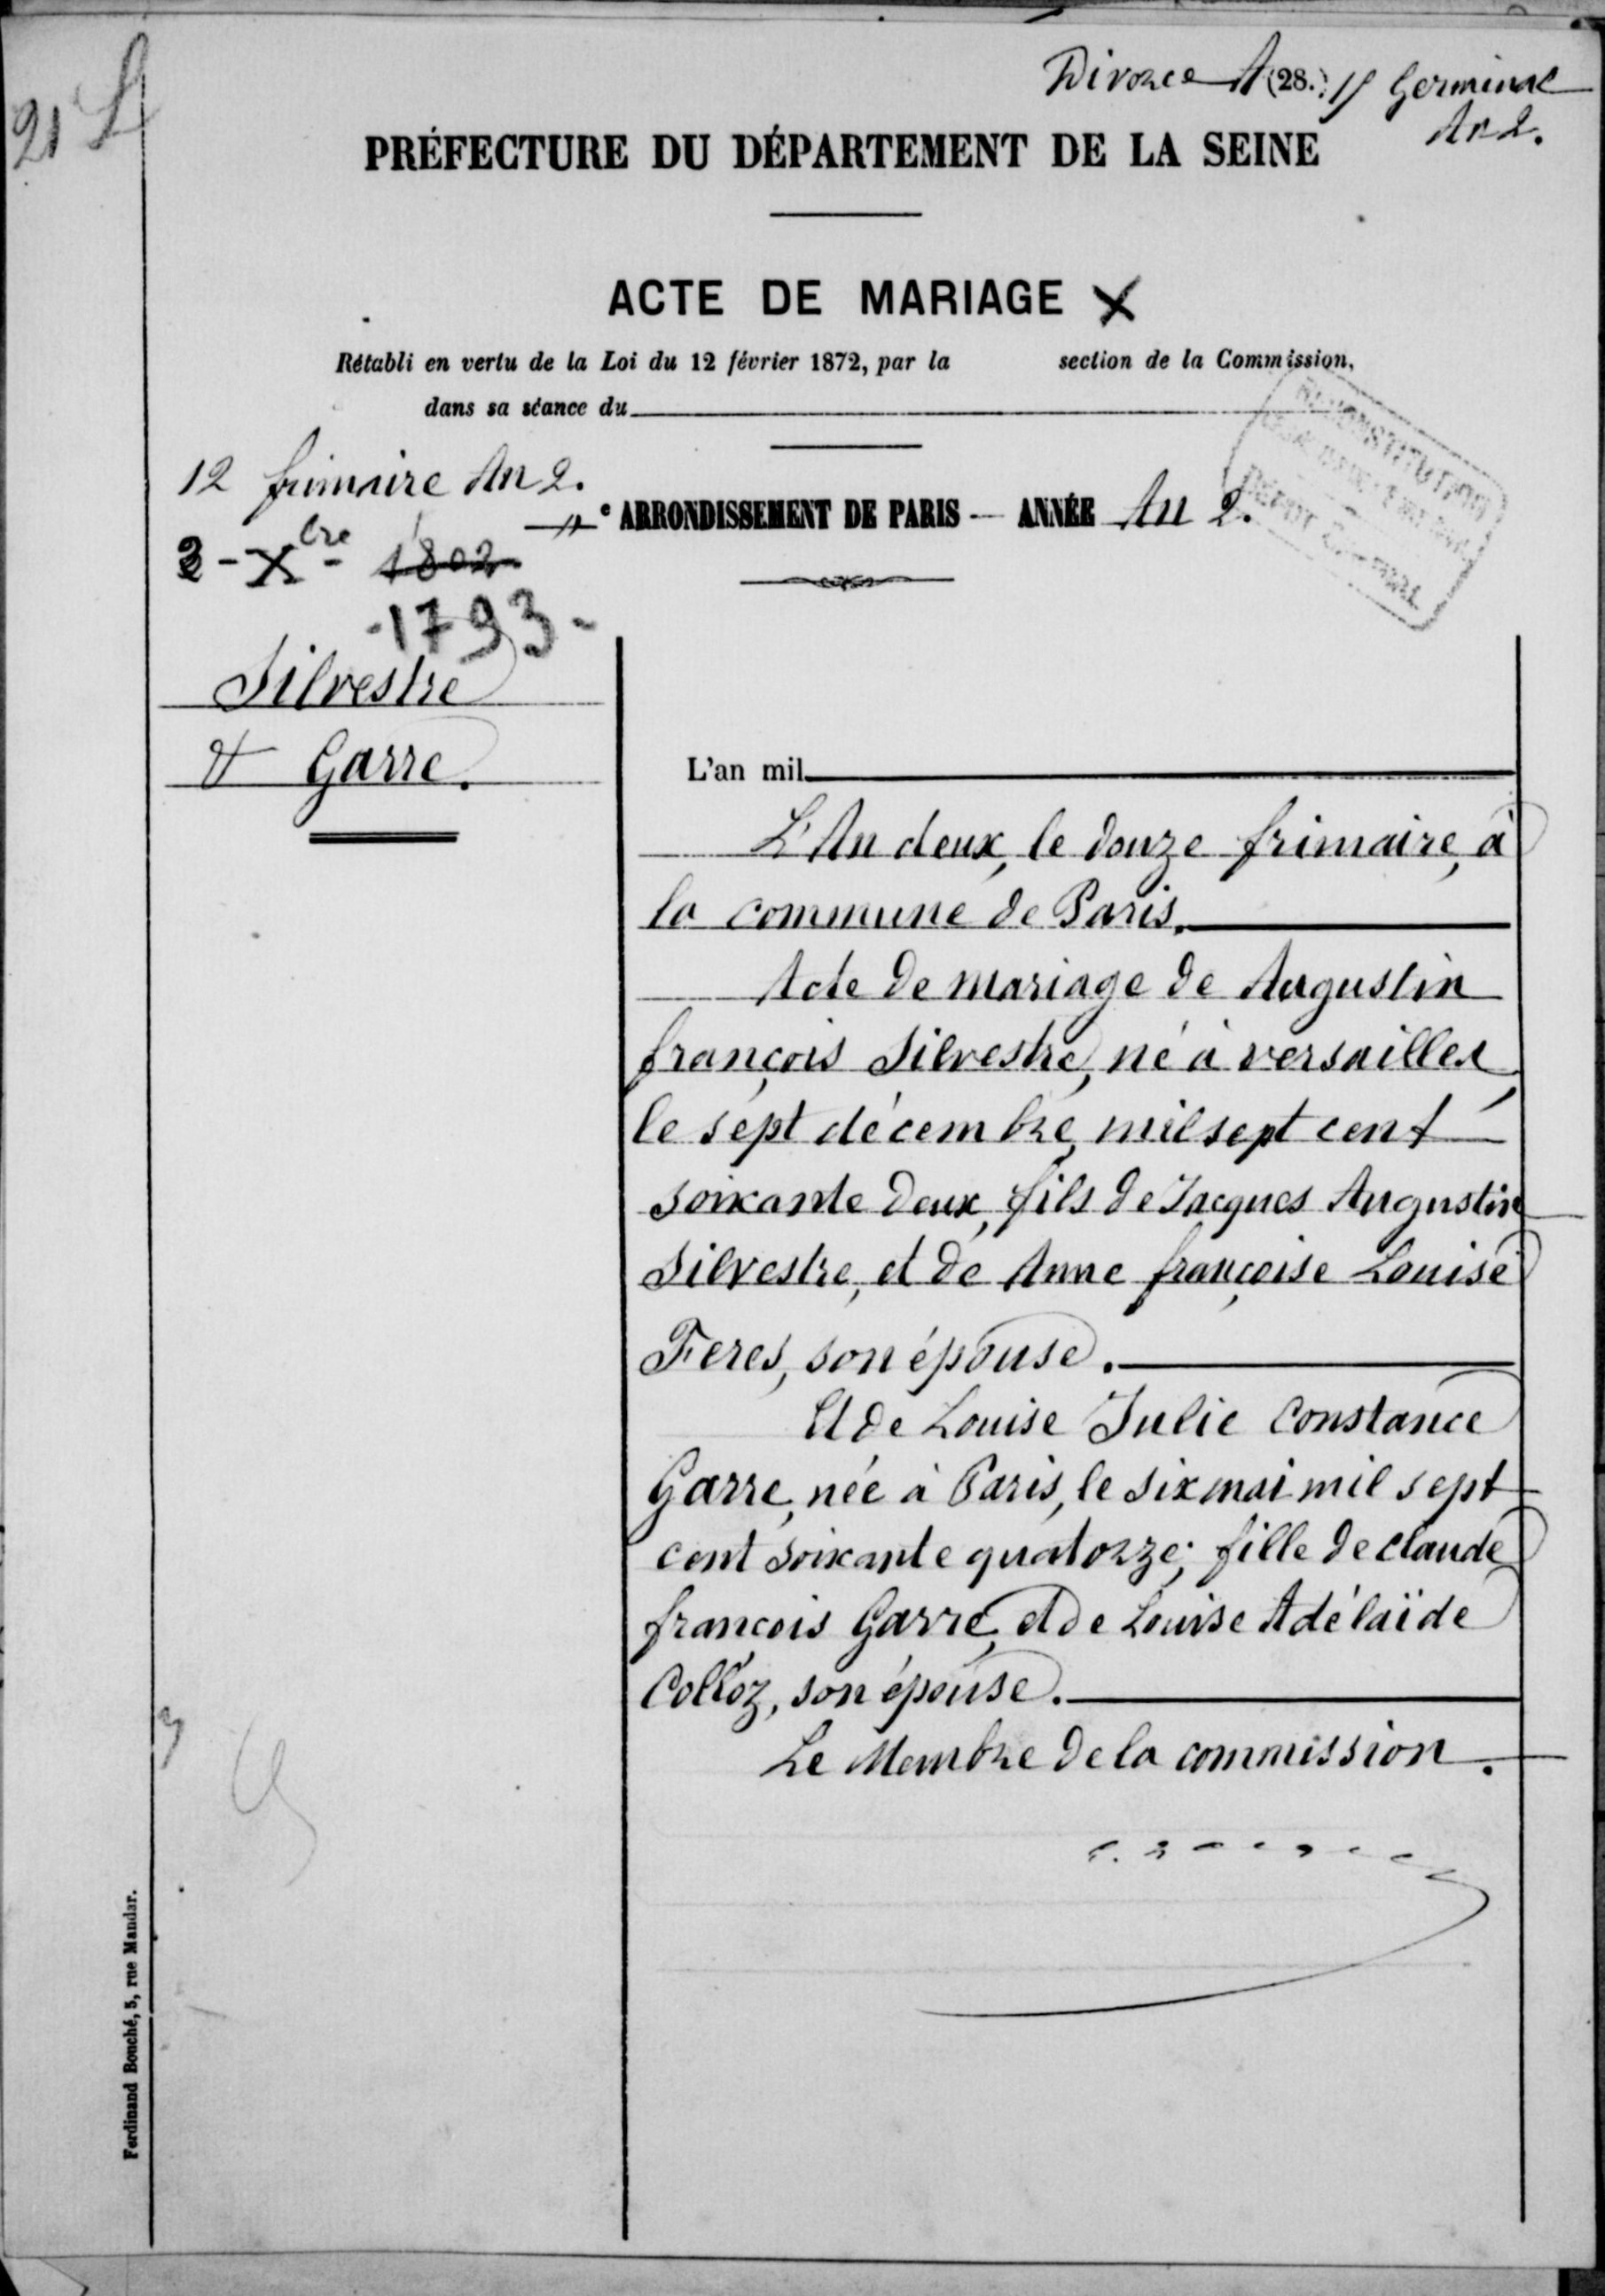 Divorce A (28.) 15 Germinal
An 2.
21
PRÉFECTURE DU DÉPARTEMENT DE LA SEINE
ACTE DE MARIAGE X
Rétabli en vertu de la Loi du 12 février 1872, par la section de la Commission,
dans sa séance du
RECONSTITUTION
12 frimaire An 2.
e ARRONDISSEMENT DE PARIS — ANNÉE An 2.
2 - Xbre - 1802
- 1793 -
Silvestre
& Garre.
L'an mil
L'An deux, le douze frimaire, à
la commune de Paris.
Acte de mariage de Augustin
françois Silvestre, né à versailles,
le sept décembre mil sept cent
soixante deux, fils de Jacques Augustin
Silvestre, et de Anne françoise Louise
Feres, son épouse.
Et de Louise Julie Constance
Garre, née à Paris, le six mai mil sept
cent soixante quatorze; fille de claude
françois Garre, et de Louise Adélaïde
Colloz, son épouse.
Le Membre de la commission.
Ferdinand Bouché, 5, rue Mandar.